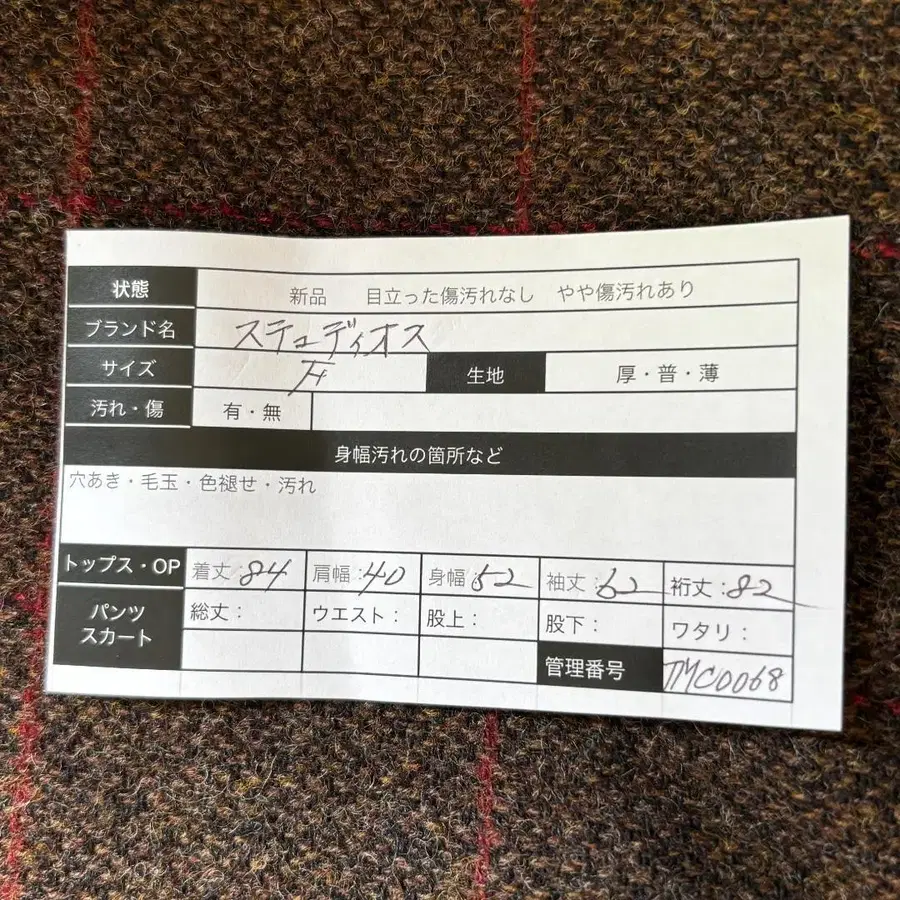 状態 新品 目立った傷汚れなし やや傷汚れあり
ブランド名 ステュディオス
サイズ 生地 厚・普・薄
汚れ・傷 有・無
身幅汚れの箇所など
穴あき・毛玉・色褪せ・汚れ
トップス・OP 着丈:84 肩幅:40 身幅:52 袖丈:62 裄丈:82
パンツ スカート 総丈: ウエスト: 股上: 股下: ワタリ:
管理番号 TMC0068